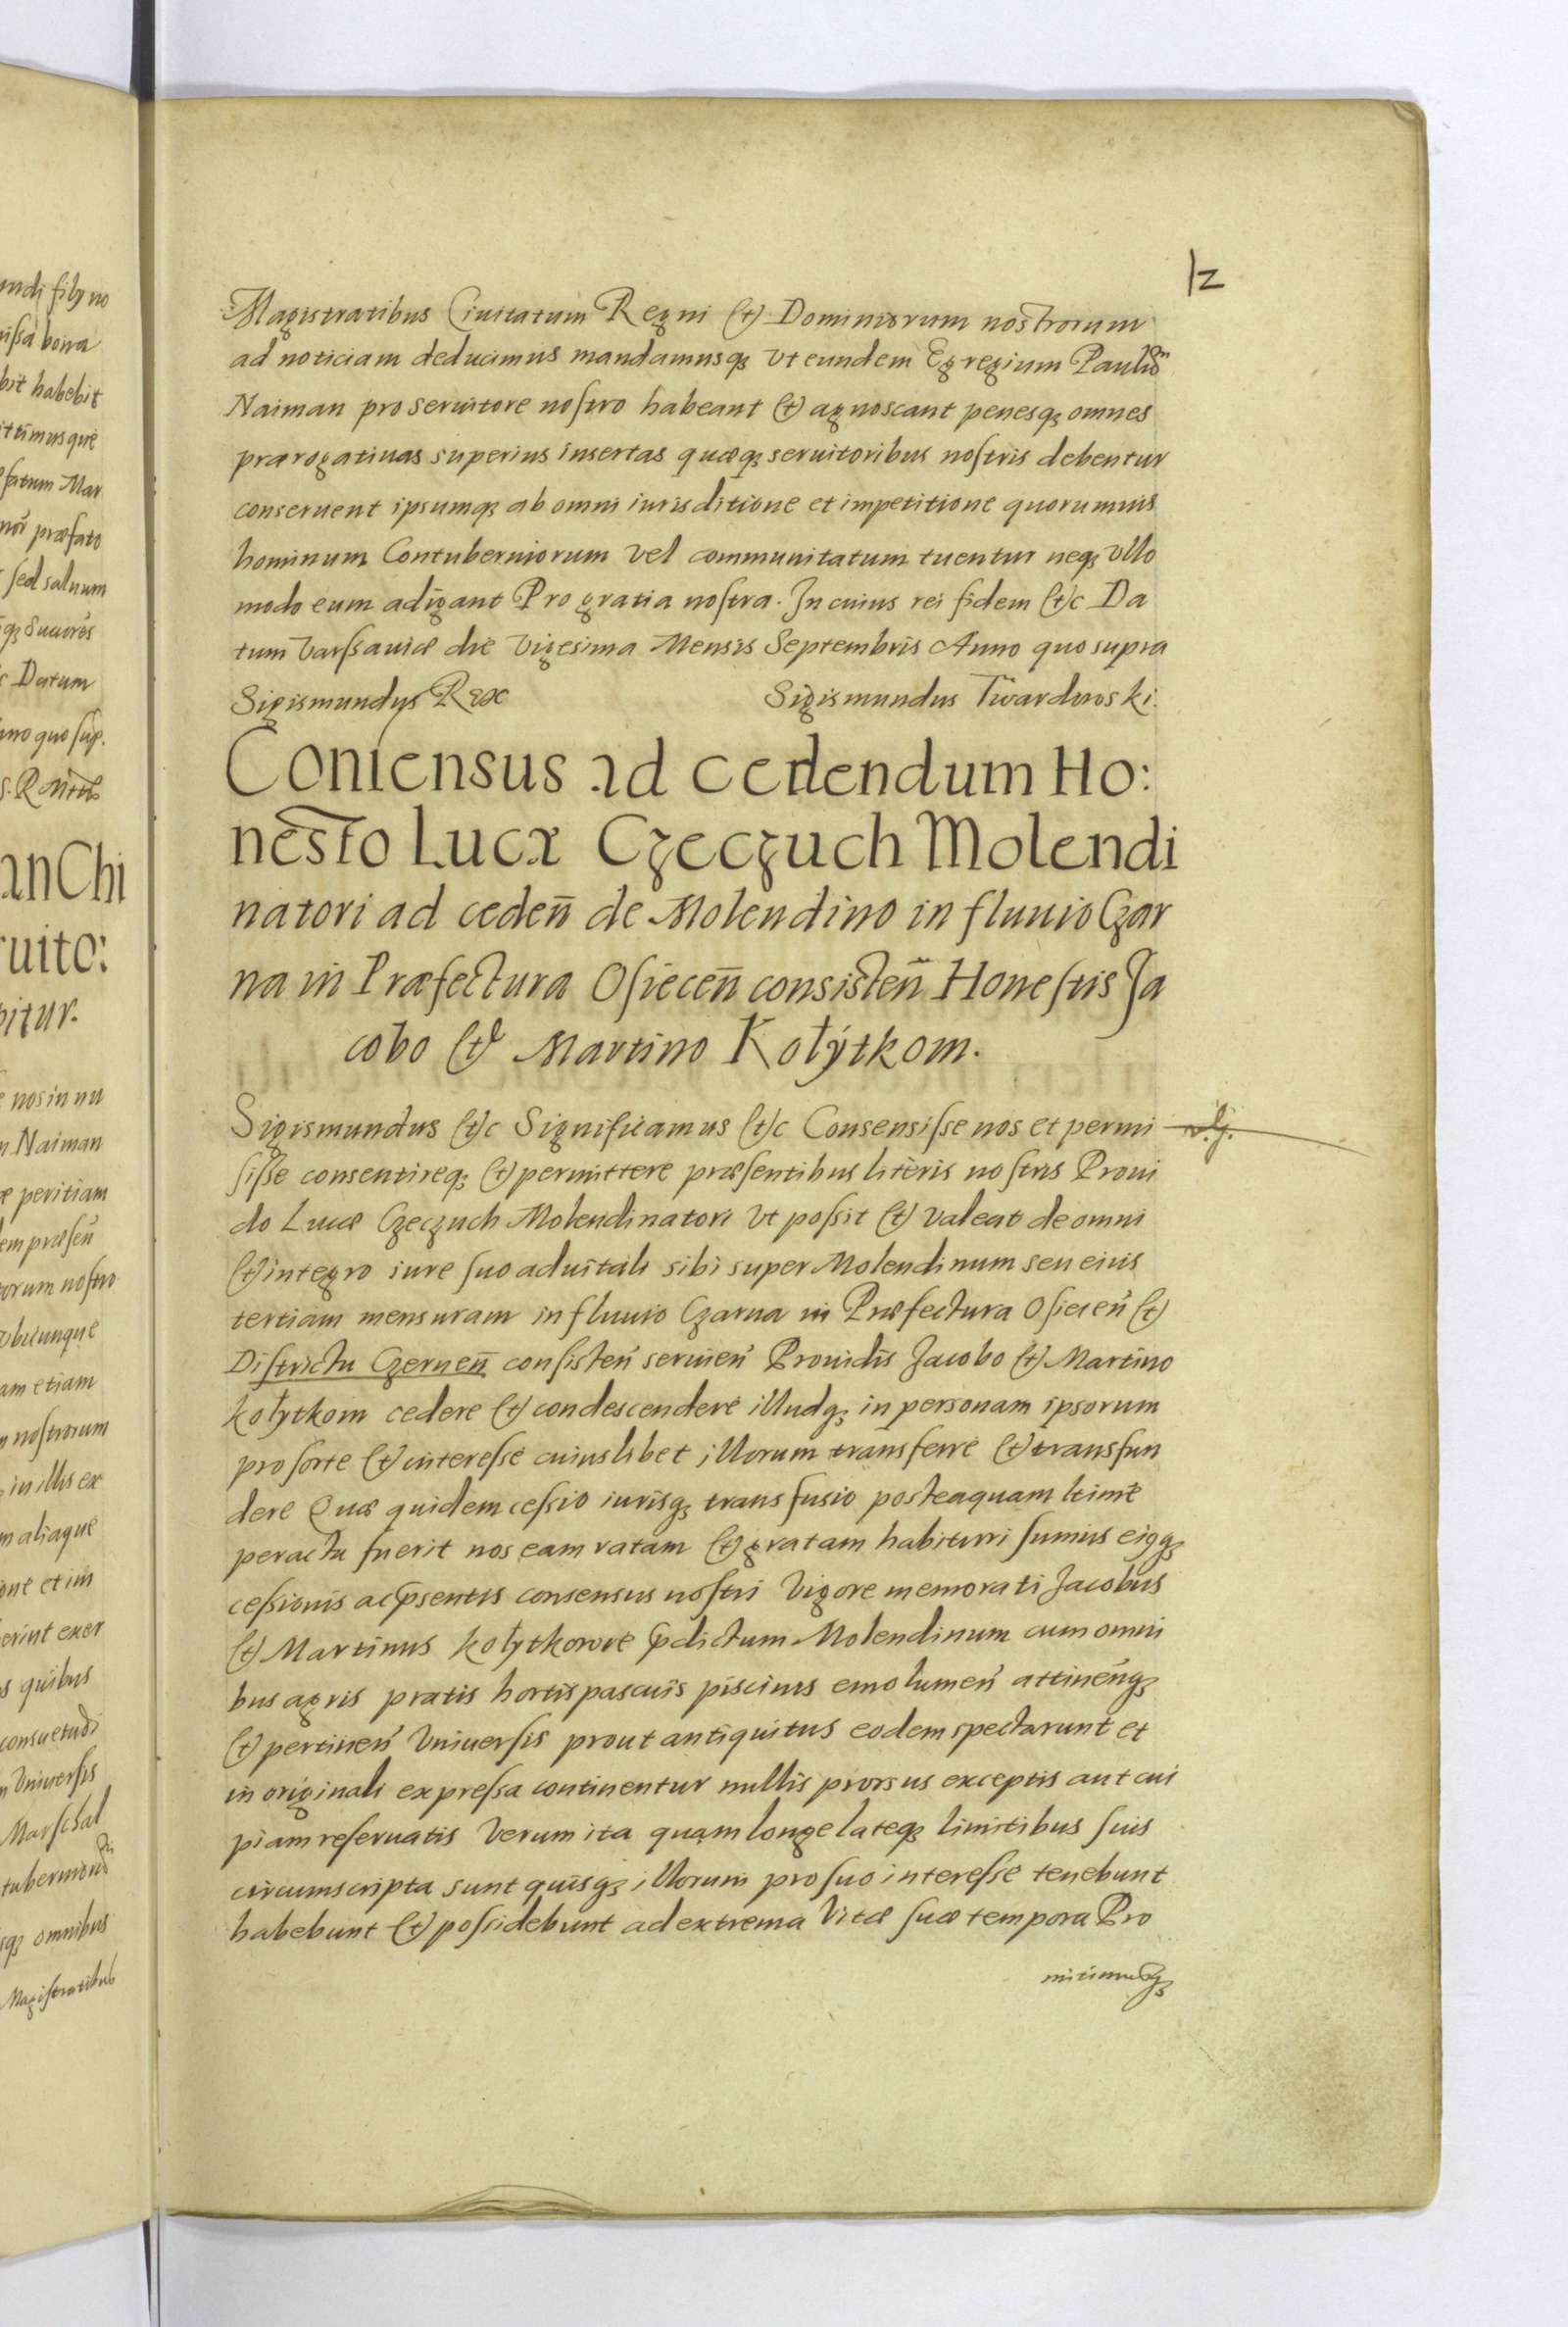 undi filÿ no
nissa bona
bit habebit
ittimusque
fatum Mar
præfato
sed saluum
Datum
nno quo sup.
anChi
ruito:
bitur.
nos in nu
n Naiman
peritiam
em præsen̄
torum nostro
vbicunque
am etiam
nostrorum
in illis ex
m aliaque
one et im
erint exer
s quibus
consuetudi
n Vniuersis
Marschal
omnibus
Magistratibus
12
Magistratibus Ciuitatum Regni (et) Dominiorum nostrorum
ad noticiam deducimus mandamusq3 vt eundem Egregium Paulū
Naiman pro seruitore nostro habeant (et) agnoscant penesq3 omnes
prærogatiuas superius insertas quæq3 seruitoribus nostris debentur
conseruent ipsumq3 ab omni iurisditione et impetitione quorumuis
hominum Contuberniorum vel communitatum tuentur neq3 vllo
modo eum adigant Pro gratia nostra. In cuius rei fidem (et)c Da
tum Varssauiæ die Vigesima Mensis Septembris Anno quo supra
Sigismundus Rex Sigismundus Twardowski.
Consensus ad cedendum Ho:
nesto Lucæ Czeczuch Molendi
natori ad ceden̄ de Molendino in fluuio Czar
na in Præfectura Osiecen̄ consisten̄ Honestis Ja
cobo (et) Martino Kołýtkom.
Sigismundus (et)c Significamus (et)c Consensisse nos et permi
sisse consentireq3 (et) permittere præsentibus literis nostris Proui
do Lucæ Czeczuch Molendinatori vt possit (et) valeat de omni
(et) integro iure suo aduitali sibi super Molendinum seu eius
tertiam mensuram in fluuio Czarna in Præfectura Osiecen̄ (et)
Districtu Czernen̄ consisten̄ seruien̄ Prouidis Jacobo (et) Martino
Kołytkom cedere (et) condescendere illudq3 in personam ipsorum
pro sorte (et) interesse cuiuslibet illorum transferre (et) transfun
dere Quæ quidem cessio iurisq3 transfusio posteaquam ltime
peracta fuerit nos eam ratam (et) gratam habituri sumus eiqq3
cessionis ac p̄sentis consensus nostri Vigore memorati Jacobus
(et) Martinus Kołytkowie p̄dictum Molendinum cum omni
bus agris pratis hortis pascuis piscinis emolumen̄ attinen̄q3
(et) pertinen̄ Vniuersis prout antiquitus eodem spectarunt et
in originali expressa continentur nullis prorsus exceptis aut cui
piam reseruatis Verum ita quam longe lateq3 limitibus suis
circumscripta sunt quisq3 illorum pro suo interesse tenebunt
habebunt (et) possidebunt ad extrema Vitæ suæ tempora Pro
mitimusq3